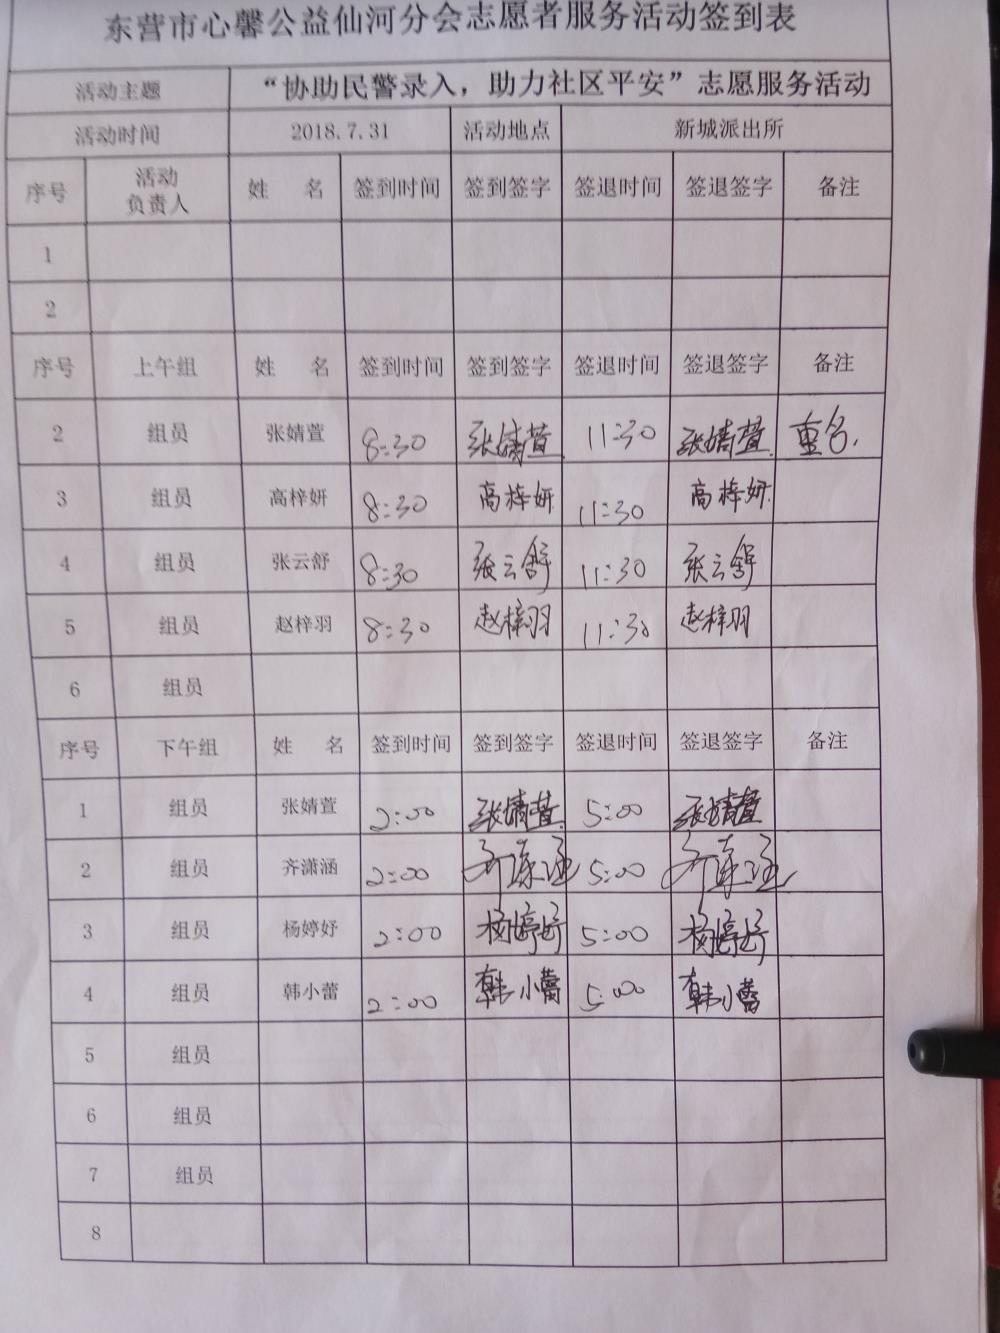 东营市心馨公益仙河分会志愿者服务活动签到表
活动主题 “协助民警录入，助力社区平安”志愿服务活动
活动时间 2018.7.31 活动地点 新城派出所
序号 活动负责人 姓 名 签到时间 签到签字 签退时间 签退签字 备注
1
2
序号 上午组 姓 名 签到时间 签到签字 签退时间 签退签字 备注
2 组员 张婧萱 8:30 张婧萱 11:30 张婧萱 重名.
3 组员 高梓妍 8:30 高梓妍 11:30 高梓妍
4 组员 张云舒 8:30 张云舒 11:30 张云舒
5 组员 赵梓羽 8:30 赵梓羽 11:30 赵梓羽
6 组员
序号 下午组 姓 名 签到时间 签到签字 签退时间 签退签字 备注
1 组员 张婧萱 2:00 张婧萱 5:00 张婧萱
2 组员 齐潇涵 2:00 齐潇涵 5:00 齐潇涵
3 组员 杨婷妤 2:00 杨婷妤 5:00 杨婷妤
4 组员 韩小蕾 2:00 韩小蕾 5:00 韩小蕾
5 组员
6 组员
7 组员
8